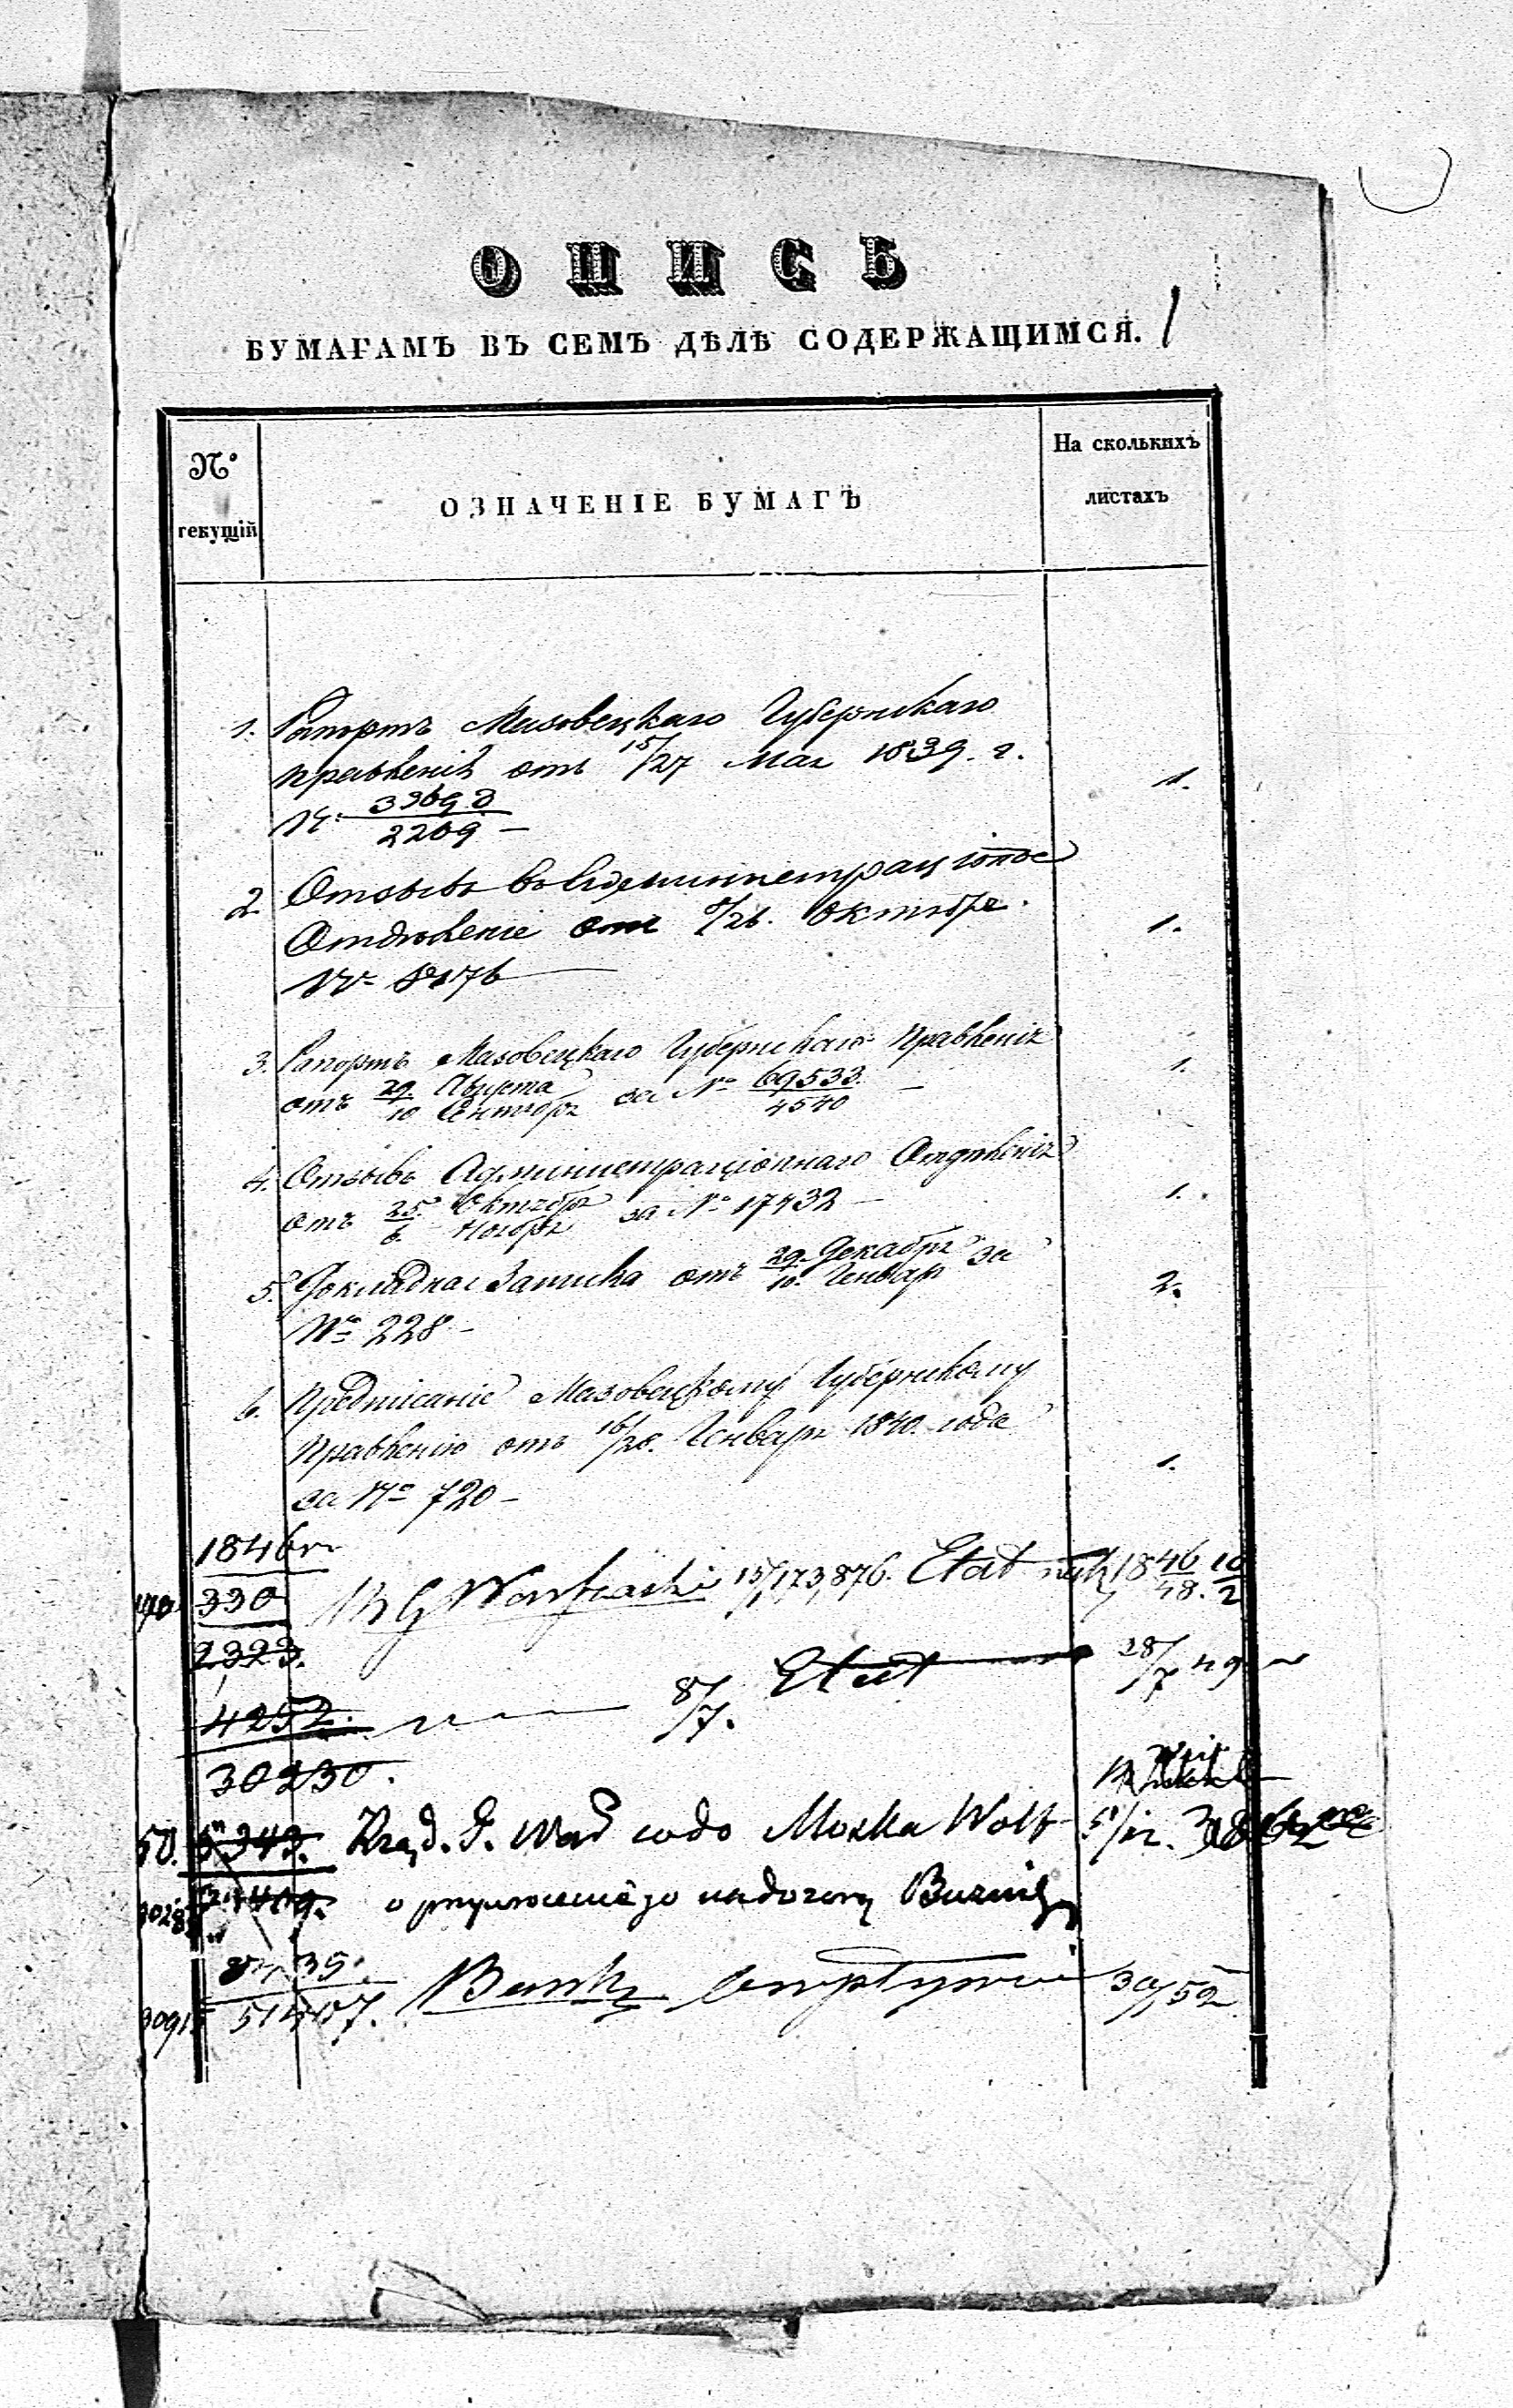 ОПИСЬ
БУМАГАМЪ ВЪ СЕМЪ ДѢЛѢ СОДЕРЖАЩИМСЯ. 1
№
текущій
ОЗНАЧЕНІЕ БУМАГЪ
На сколькихъ
листахъ
1. Рапортъ Мазовецкаго Губернскаго
правленія отъ 15/27 Мая 1839. г. 1.
№ 33698/2209
2 Отзывъ въ Администраціонное
Отдѣленіе отъ 8/26. Октября. 1.
№ 18176
3. Рапортъ Мазовецкаго Губернскаго Правленія 1.
отъ 29. Августа/10 Сентября за № 69533./4540
4. Отзывъ Администраціоннаго Отдѣленія
отъ 25. Октября/6. Ноября за № 17432 1.
5. Докладная Записка отъ 29. Декабря/10. Генваря за 2.
№ 228
6. Предписаніе Мазовецкому Губернскому
Правленію отъ 16/28. Генваря 1840. года 1.
за № 720
1846
330 15/1 173,876. Etat 1846/48. 10/2
2,323.
4252. 8/7. Etat 28/7 49
30230.
50. 5343. Rząd. G. War codo Moszka Wolf 5/12.
3028
35.
3091 51407. Banku 30/1 52